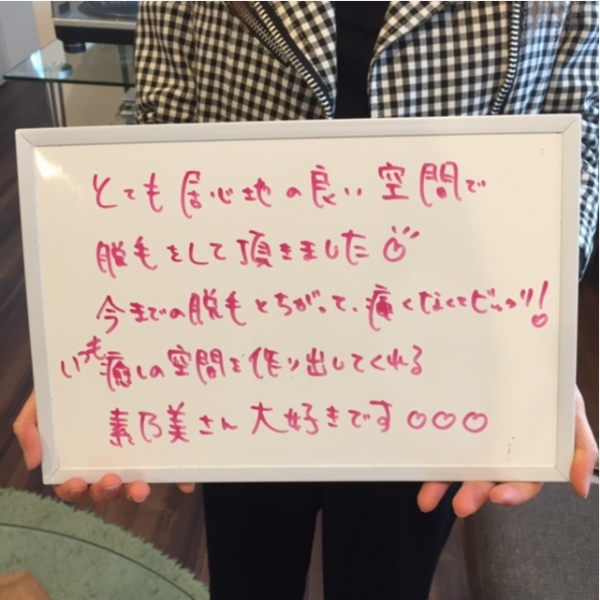 とても居心地の良い空間で
脱毛をして頂きました
今までの脱毛とちがって、痛くなくてビックリ!
いつも癒しの空間を作り出してくれる
素乃美さん大好きです○○○